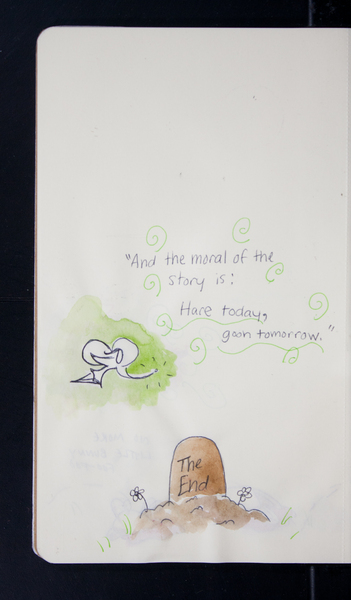 "And the moral of the
story is:
Hare today,
goon tomorrow."
The
End